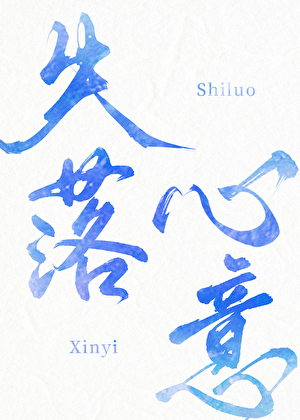 失落
Shiluo
心意
Xinyi